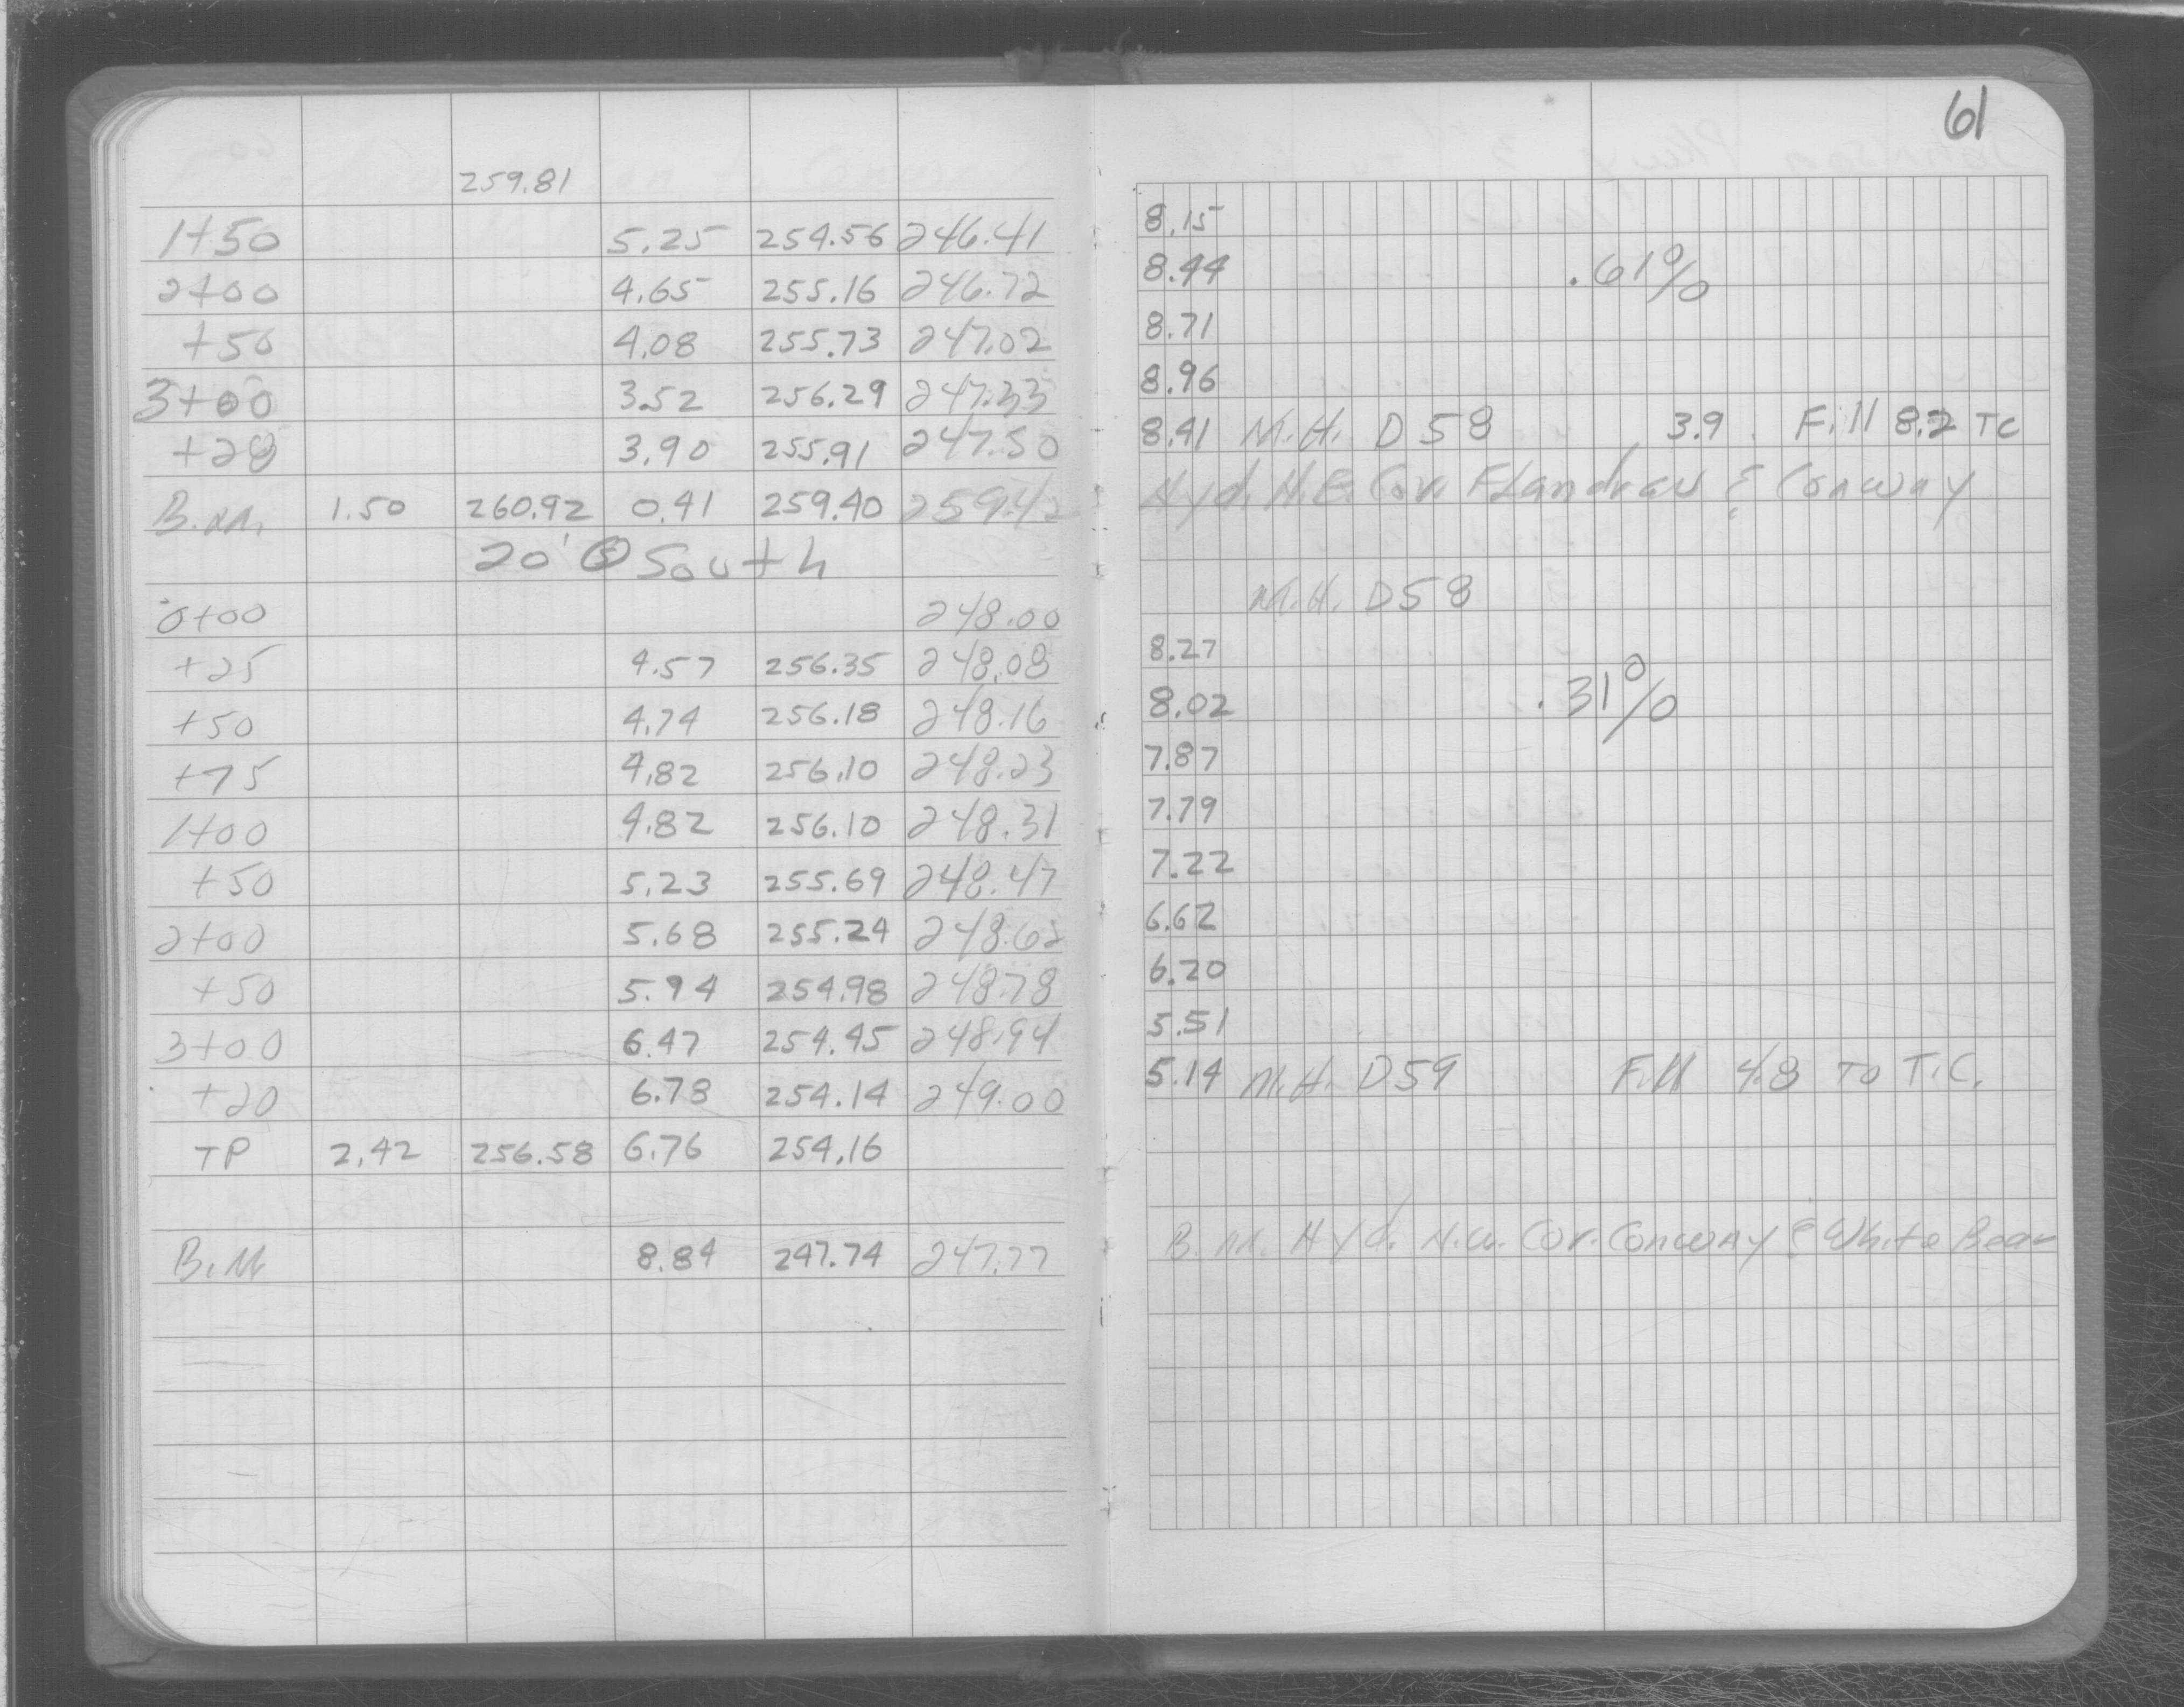 61
259.81
1+50 5.25 254.56 246.41 8.15
2+00 4.65 255.16 246.72 8.44 .61%
+50 4.08 255.73 247.02 8.71
3+00 3.52 256.29 247.33 8.96
+28 3.90 255.91 247.50 8.41 M.H. D58 3.9 Fill 8.2 TC
B.M. 1.50 260.92 0.41 259.40 259.42 Hyd. N.E. Cor. Flandrau & Conway
20' @ South
0+00 248.00 M.H. D58
+25 4.57 256.35 248.08 8.27
+50 4.74 256.18 248.16 8.02 .31%
+75 4.82 256.10 248.23 7.87
1+00 4.82 256.10 248.31 7.79
+50 5.23 255.69 248.47 7.22
2+00 5.68 255.24 248.62 6.62
+50 5.94 254.98 248.78 6.20
3+00 6.47 254.45 248.94 5.51
+20 6.78 254.14 249.00 5.14 M.H. D59 Fill 4.8 To T.C.
TP 2.42 256.58 6.76 254.16
B.M 8.84 247.74 247.77 B.M. Hyd. N.W. Cor. Conway & White Bear